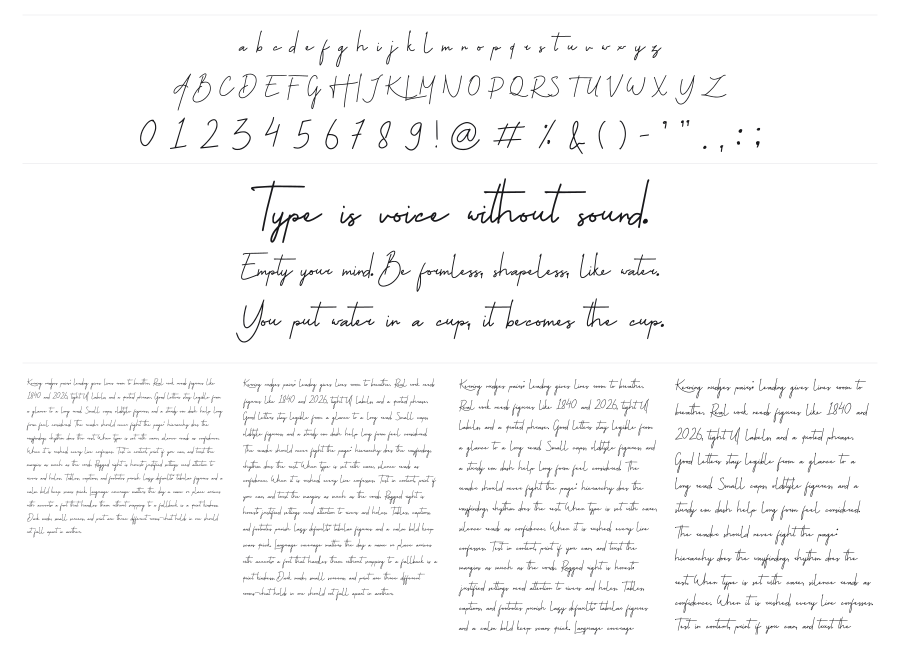 a b c d e f g h i j k l m n o p q r s t u v w x y z
A B C D E F G H I J K L M N O P Q R S T U V W X Y Z
0 1 2 3 4 5 6 7 8 9 ! @ # % & ( ) - ' " . , : ;
Type is voice without sound.
Empty your mind. Be formless, shapeless, like water.
You put water in a cup, it becomes the cup.
Kerning nudges pairs; leading gives lines room to breathe. Real work needs figures like
1840 and 2026, tight UI labels, and a quoted phrase. Good letters stay legible from
a glance to a long read. Small caps, oldstyle figures, and a steady en dash help long
form feel considered. The reader should never fight the page; hierarchy does the
wayfinding, rhythm does the rest. When type is set with care, silence reads as confidence.
When it is rushed, every line confesses. Test in context, print if you can, and trust the
margins as much as the words. Ragged right is honest; justified settings need attention to
rivers and holes. Tables, captions, and footnotes punish lazy defaults; tabular figures and a
calm bold keep scans quick. Language coverage matters the day a name or place arrives
with accents; a font that handles them without swapping to a fallback is a quiet kindness.
Dark mode, small screens, and print are three different rooms—what holds in one should
not fall apart in another.
Kerning nudges pairs; leading gives lines room to breathe. Real work needs
figures like 1840 and 2026, tight UI labels, and a quoted phrase.
Good letters stay legible from a glance to a long read. Small caps,
oldstyle figures, and a steady en dash help long form feel considered.
The reader should never fight the page; hierarchy does the wayfinding,
rhythm does the rest. When type is set with care, silence reads as
confidence. When it is rushed, every line confesses. Test in context, print if
you can, and trust the margins as much as the words. Ragged right is
honest; justified settings need attention to rivers and holes. Tables, captions,
and footnotes punish lazy defaults; tabular figures and a calm bold keep
scans quick. Language coverage matters the day a name or place arrives
with accents; a font that handles them without swapping to a fallback is a
quiet kindness. Dark mode, small screens, and print are three different
rooms—what holds in one should not fall apart in another.
Kerning nudges pairs; leading gives lines room to breathe.
Real work needs figures like 1840 and 2026, tight UI
labels, and a quoted phrase. Good letters stay legible from
a glance to a long read. Small caps, oldstyle figures, and
a steady en dash help long form feel considered. The
reader should never fight the page; hierarchy does the
wayfinding, rhythm does the rest. When type is set with care,
silence reads as confidence. When it is rushed, every line
confesses. Test in context, print if you can, and trust the
margins as much as the words. Ragged right is honest;
justified settings need attention to rivers and holes. Tables,
captions, and footnotes punish lazy defaults; tabular figures
and a calm bold keep scans quick. Language coverage
Kerning nudges pairs; leading gives lines room to
breathe. Real work needs figures like 1840 and
2026, tight UI labels, and a quoted phrase.
Good letters stay legible from a glance to a
long read. Small caps, oldstyle figures, and a
steady en dash help long form feel considered.
The reader should never fight the page;
hierarchy does the wayfinding, rhythm does the
rest. When type is set with care, silence reads as
confidence. When it is rushed, every line confesses.
Test in context, print if you can, and trust the